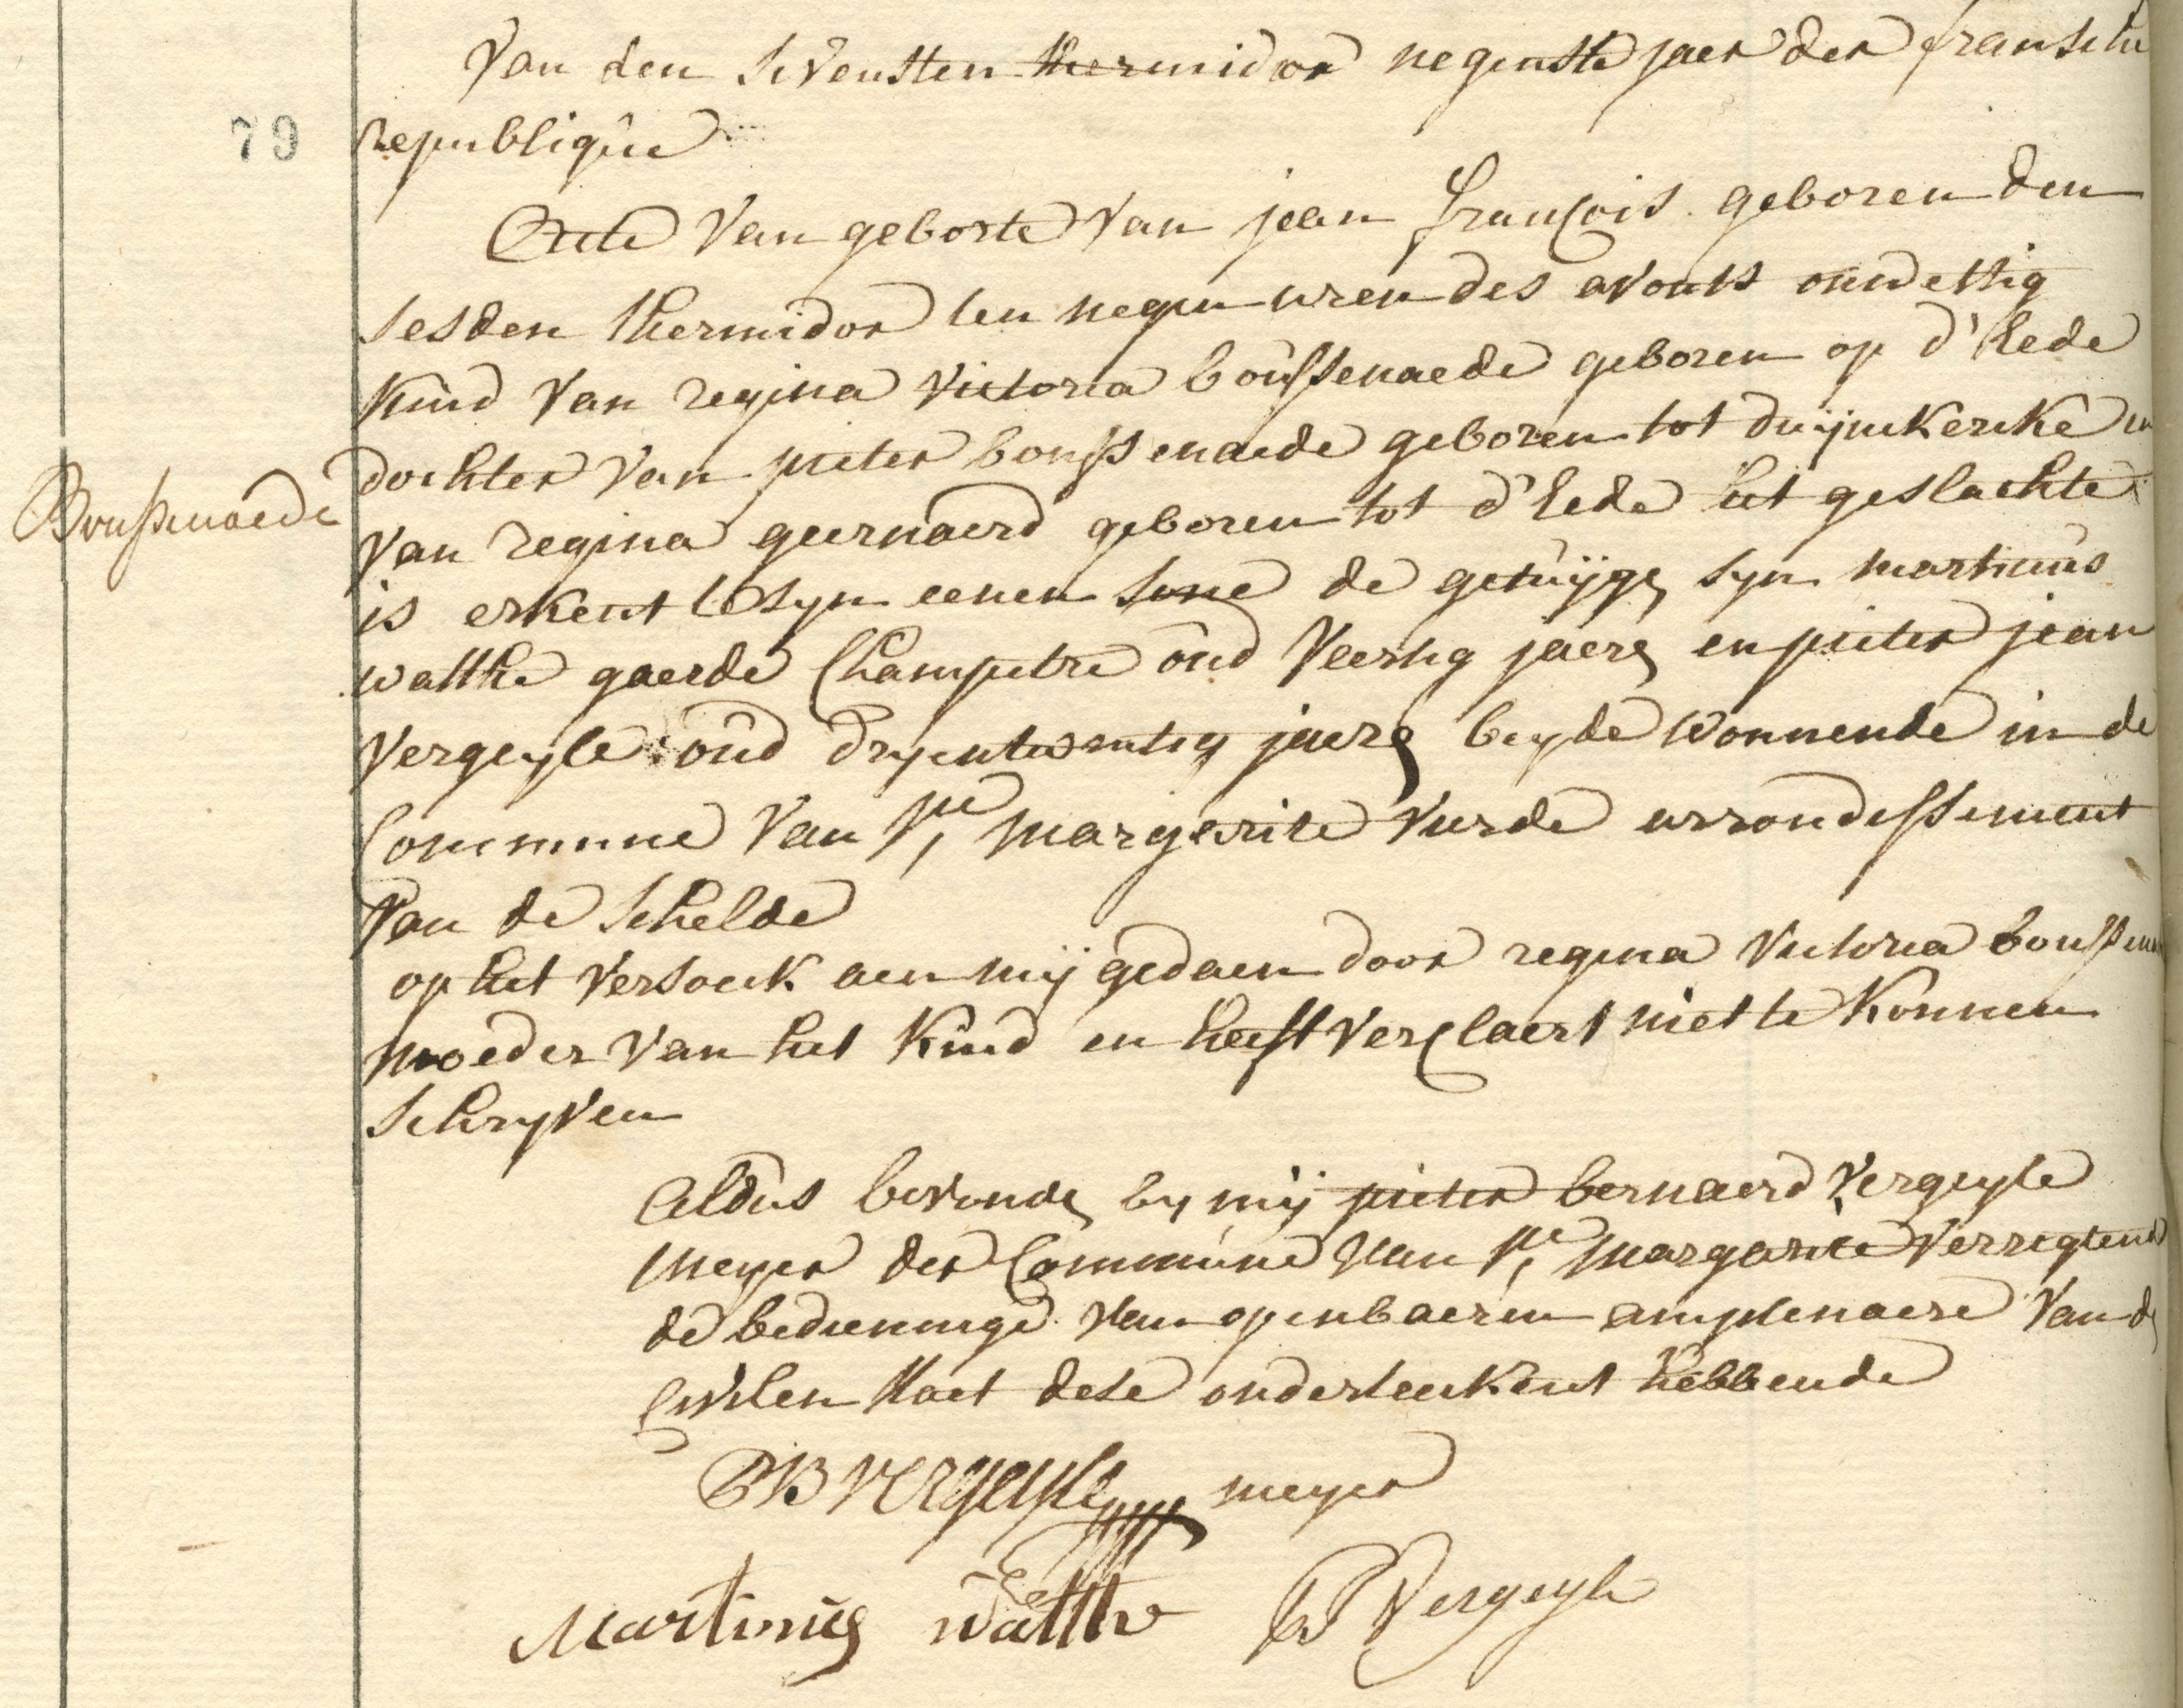 Van den sevensten thermidor negenste jaer der fransche
79
republique
Acte van geborte van jean françois geboren den
sesden thermidor ten negen uren des avonts onwettig
kind van regina victoria boussemaede geboren op d'hede
dochter van pieter boussemaede geboren tot duijnkercke en
Boussemaede
van regina geernaerd geboren tot d'hede het geslachte
is erkent te syn eenen sone de getuijgen syn martinus
watthe gaerde Champetre oud veertig jaeren en pieter jean
vergeyle oud dryentwintig jaeren beyde wonnende in de
Commune van Ste margerite vierde arrondissement
van de schelde
op het versoeck aen mij gedaen door regina victoria boussem
moeder van het kind en heeft verclaert niet te konnen
schryven
Aldus bevonden by mij pieter bernaerd vergeyle
meyer der Commune van Ste margarite verregtend
de bedieninge van openbaeren amptenaere van den
Civilen staet dese onderteekent hebbende
PB vergeyle meyer
Martinus watthe PJ Vergeyle